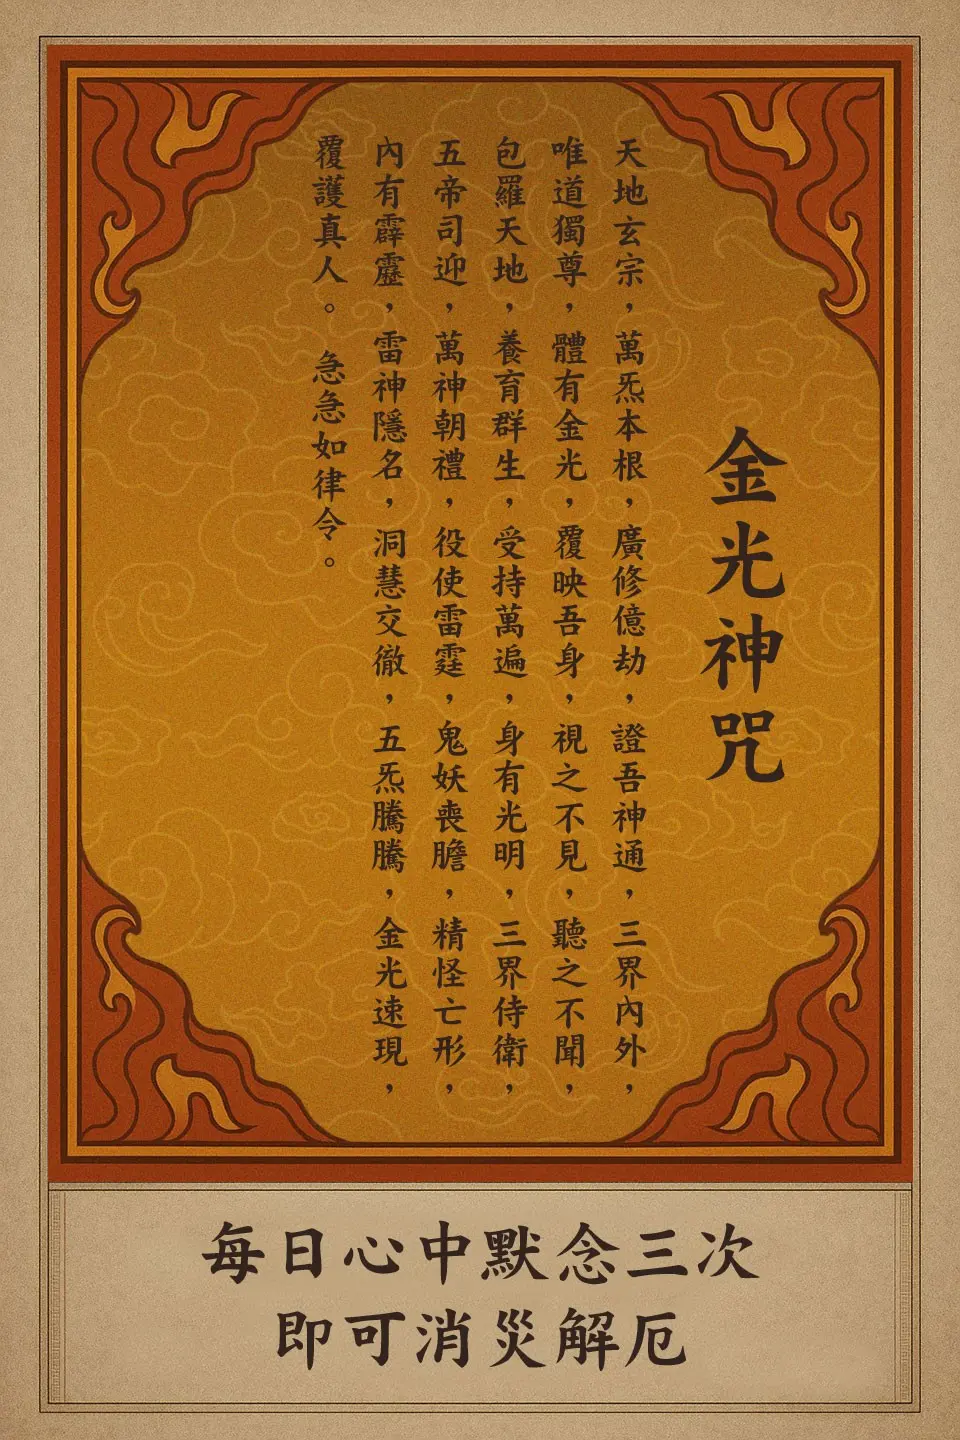 金光神咒
天地玄宗，萬炁本根，廣修億劫，證吾神通，三界內外，
唯道獨尊，體有金光，覆映吾身，視之不見，聽之不聞，
包羅天地，養育群生，受持萬遍，身有光明，三界侍衛，
五帝司迎，萬神朝禮，役使雷霆，鬼妖喪膽，精怪亡形，
內有霹靂，雷神隱名，洞慧交徹，五炁騰騰，金光速現，
覆護真人。急急如律令。
每日心中默念三次
即可消災解厄